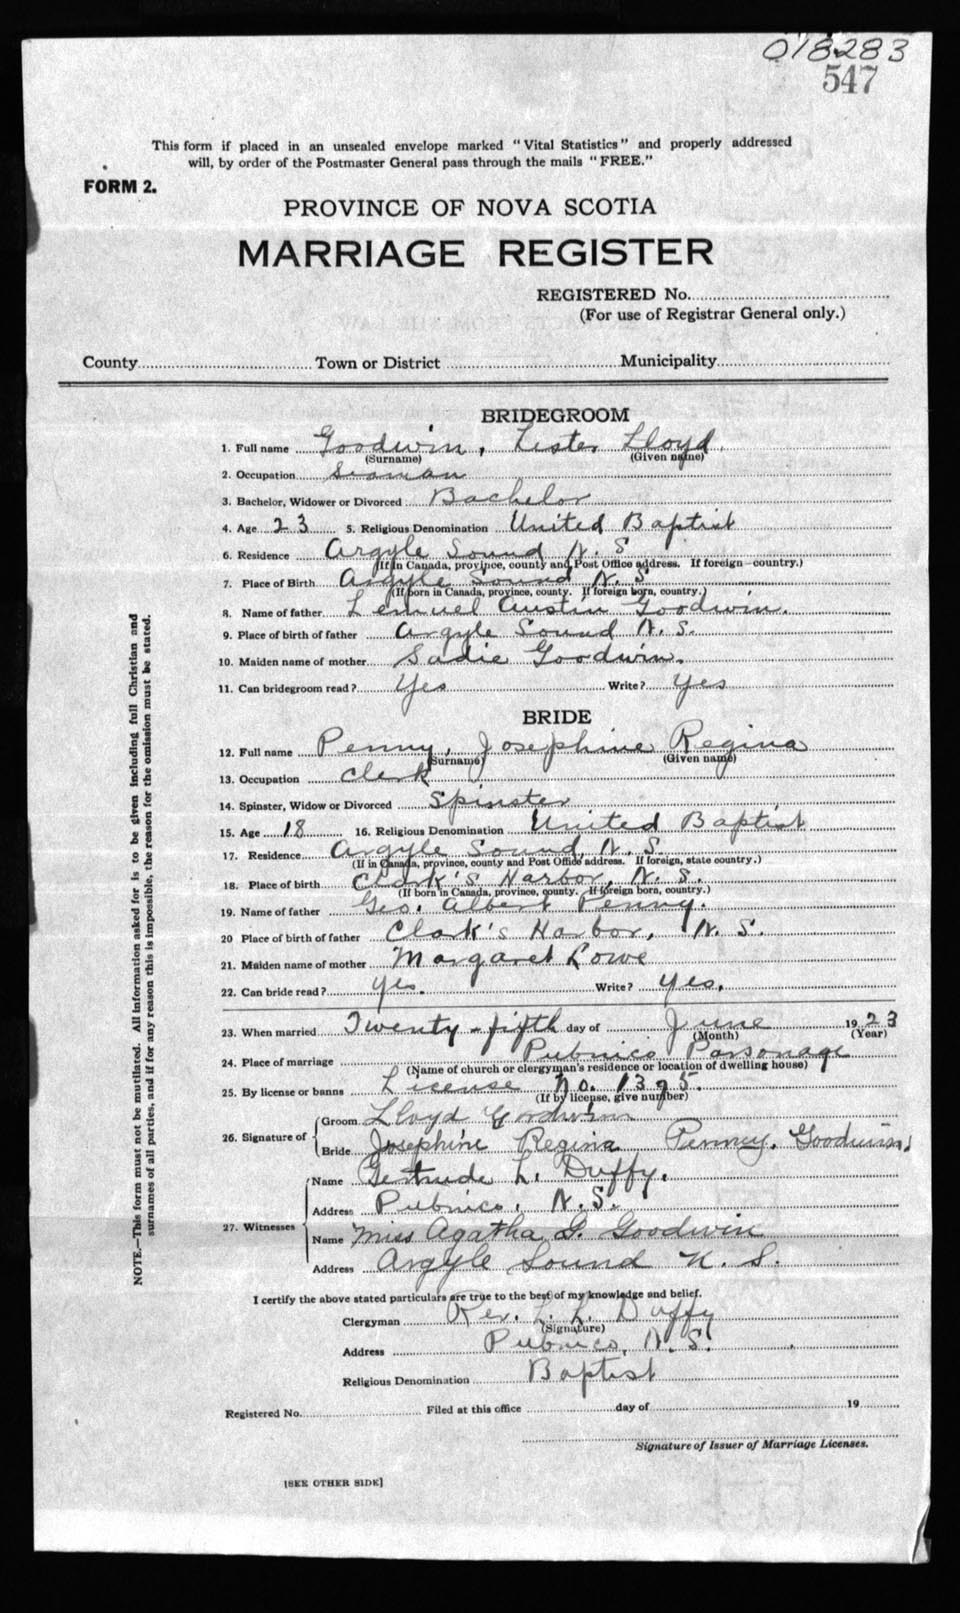 018283
547
This form if placed in an unsealed envelope marked "Vital Statistics" and properly addressed
will, by order of the Postmaster General pass through the mails "FREE."
FORM 2.
PROVINCE OF NOVA SCOTIA
MARRIAGE REGISTER
REGISTERED No.
(For use of Registrar General only.)
County Town or District Municipality
BRIDEGROOM
1. Full name Goodwin, Lester Lloyd
(Surname) (Given name)
2. Occupation Seaman
3. Bachelor, Widower or Divorced Bachelor
4. Age 23 5. Religious Denomination United Baptist
6. Residence Argyle Sound N. S
(If in Canada, province, county and Post Office address. If foreign—country.)
7. Place of Birth Argyle Sound N. S
(If born in Canada, province, county. If foreign born, country.)
8. Name of father Lemuel Austin Goodwin.
9. Place of birth of father Argyle Sound N. S.
10. Maiden name of mother Sadie Goodwin.
11. Can bridegroom read? Yes Write? Yes
BRIDE
12. Full name Penny, Josephine Regina
(Surname) (Given name)
13. Occupation Clerk
14. Spinster, Widow or Divorced Spinster
15. Age 18 16. Religious Denomination United Baptist
17. Residence Argyle Sound, N. S.
(If in Canada, province, county and Post Office address. If foreign, state country.)
18. Place of birth Clark's Harbor, N. S.
(If born in Canada, province, county. If foreign born, country.)
19. Name of father Geo. Albert Penny.
20 Place of birth of father Clark's Harbor, N. S.
21. Maiden name of mother Margaret Lowe
22. Can bride read? yes. Write? yes.
23. When married Twenty-fifth day of June 1923
(Month) (Year)
24. Place of marriage Pubnico Parsonage
(Name of church or clergyman's residence or location of dwelling house)
25. By license or banns License No. 1395.
(If by license, give number)
26. Signature of
Groom Lloyd Goodwin
Bride Josephine Regina Penney. Goodwin.
27. Witnesses
Name Gertrude L. Duffy.
Address Pubnico, N. S.
Name Miss Agatha G. Goodwin
Address Argyle Sound N. S.
I certify the above stated particulars are true to the best of my knowledge and belief.
Clergyman Rev. L. L. Duffy
(Signature)
Address Pubnico, N. S.
Religious Denomination Baptist
Registered No. Filed at this office day of 19
Signature of Issuer of Marriage Licenses.
[SEE OTHER SIDE]
NOTE.—This form must not be mutilated. All information asked for is to be given including full Christian and
surnames of all parties, and if for any reason this is impossible, the reason for the omission must be stated.